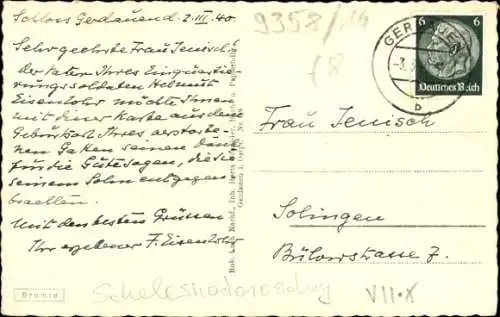 Schloss Gerdauen d. 2. III. 40.
Sehr geehrte Frau Jenisch!
der Vater Ihres Einquartie-
rungssoldaten Helmut
Eisenlohr möchte Ihnen
mit einer Karte aus dem
Geburtsort Ihres verstorbe-
nen Gatten seinen Dank
für die Güte sagen, die Sie
seinem Sohn entgegen
brachten.
Mit den besten Grüssen
Ihr ergebener F. Eisenlohr
Bromid
9358/
GERDAUEN
b
6 6
Deutsches Reich
Frau Jenisch
Solingen
Bülowstrasse 7.
VII-X